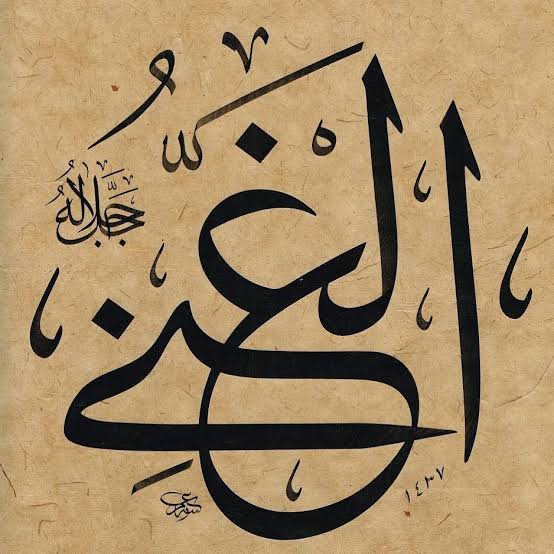 الغَنِيّ
جَلَّ جَلَالُهُ
١٤٣٧